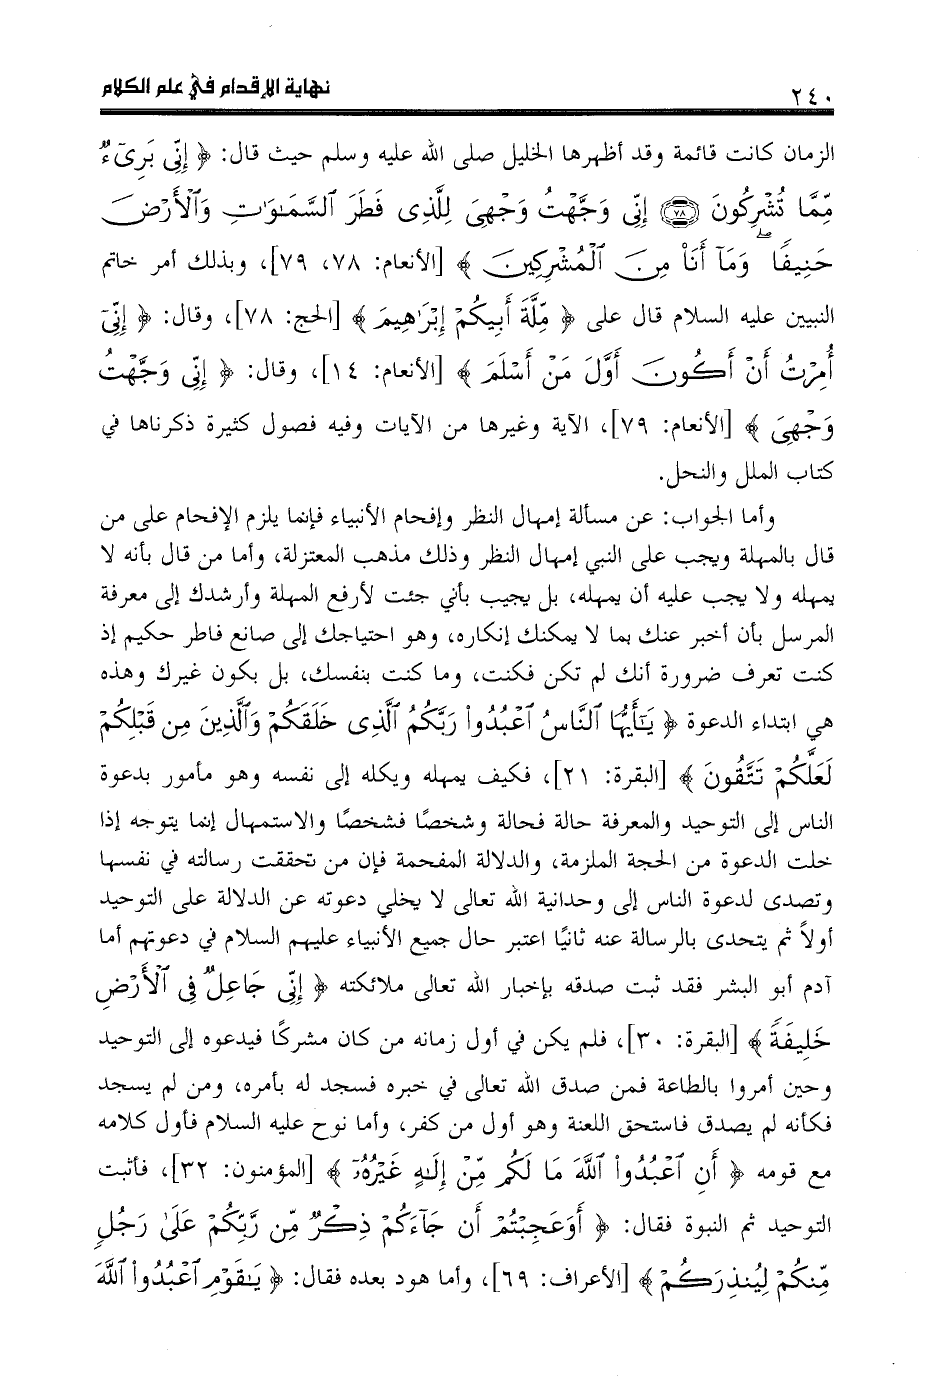 ٢٤٠ نهاية الإقدام في علم الكلام
الزمان كانت قائمة وقد أظهرها الخليل صلى الله عليه وسلم حيث قال: ﴿ إِنِّي بَرِيٓءٌ
مِّمَّا تُشْرِكُونَ ﴿٧٨﴾ إِنِّي وَجَّهْتُ وَجْهِيَ لِلَّذِي فَطَرَ ٱلسَّمَٰوَٰتِ وَٱلْأَرْضَ
حَنِيفًاۖ وَمَآ أَنَا۠ مِنَ ٱلْمُشْرِكِينَ ﴾ [الأنعام: ٧٨، ٧٩]، وبذلك أمر خاتم
النبيين عليه السلام قال على ﴿ مِّلَّةَ أَبِيكُمْ إِبْرَٰهِيمَ ﴾ [الحج: ٧٨]، وقال: ﴿ إِنِّيٓ
أُمِرْتُ أَنْ أَكُونَ أَوَّلَ مَنْ أَسْلَمَ ﴾ [الأنعام: ١٤]، وقال: ﴿ إِنِّي وَجَّهْتُ
وَجْهِيَ ﴾ [الأنعام: ٧٩]، الآية وغيرها من الآيات وفيه فصول كثيرة ذكرناها في
كتاب الملل والنحل.
وأما الجواب: عن مسألة إمهال النظر وإفحام الأنبياء فإنما يلزم الإفحام على من
قال بالمهلة ويجب على النبي إمهال النظر وذلك مذهب المعتزلة، وأما من قال بأنه لا
يمهله ولا يجب عليه أن يمهله، بل يجيب بأني جئت لأرفع المهلة وأرشدك إلى معرفة
المرسل بأن أخبر عنك بما لا يمكنك إنكاره، وهو احتياجك إلى صانع فاطر حكيم إذ
كنت تعرف ضرورة أنك لم تكن فكنت، وما كنت بنفسك، بل بكون غيرك وهذه
هي ابتداء الدعوة ﴿ يَٰٓأَيُّهَا ٱلنَّاسُ ٱعْبُدُوا۟ رَبَّكُمُ ٱلَّذِي خَلَقَكُمْ وَٱلَّذِينَ مِن قَبْلِكُمْ
لَعَلَّكُمْ تَتَّقُونَ ﴾ [البقرة: ٢١]، فكيف يمهله ويكله إلى نفسه وهو مأمور بدعوة
الناس إلى التوحيد والمعرفة حالة فحالة وشخصًا فشخصًا والاستمهال إنما يتوجه إذا
خلت الدعوة من الحجة الملزمة، والدلالة المفحمة فإن من تحققت رسالته في نفسها
وتصدى لدعوة الناس إلى وحدانية الله تعالى لا يخلي دعوته عن الدلالة على التوحيد
أولاً ثم يتحدى بالرسالة عنه ثانيًا اعتبر حال جميع الأنبياء عليهم السلام في دعوتهم أما
آدم أبو البشر فقد ثبت صدقه بإخبار الله تعالى ملائكته ﴿ إِنِّي جَاعِلٌ فِي ٱلْأَرْضِ
خَلِيفَةً ﴾ [البقرة: ٣٠]، فلم يكن في أول زمانه من كان مشركًا فيدعوه إلى التوحيد
وحين أمروا بالطاعة فمن صدق الله تعالى في خبره فسجد له بأمره، ومن لم يسجد
فكأنه لم يصدق فاستحق اللعنة وهو أول من كفر، وأما نوح عليه السلام فأول كلامه
مع قومه ﴿ أَنِ ٱعْبُدُوا۟ ٱللَّهَ مَا لَكُم مِّنْ إِلَٰهٍ غَيْرُهُۥٓ ﴾ [المؤمنون: ٣٢]، فأثبت
التوحيد ثم النبوة فقال: ﴿ أَوَعَجِبْتُمْ أَن جَآءَكُمْ ذِكْرٌ مِّن رَّبِّكُمْ عَلَىٰ رَجُلٍ
مِّنكُمْ لِيُنذِرَكُمْ ﴾ [الأعراف: ٦٩]، وأما هود بعده فقال: ﴿ يَٰقَوْمِ ٱعْبُدُوا۟ ٱللَّهَ